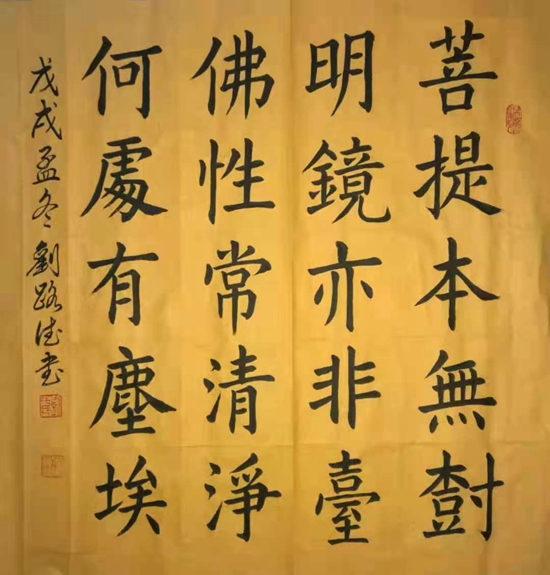 菩提本無樹
明鏡亦非臺
佛性常清淨
何處有塵埃
戊戌孟冬劉路德書